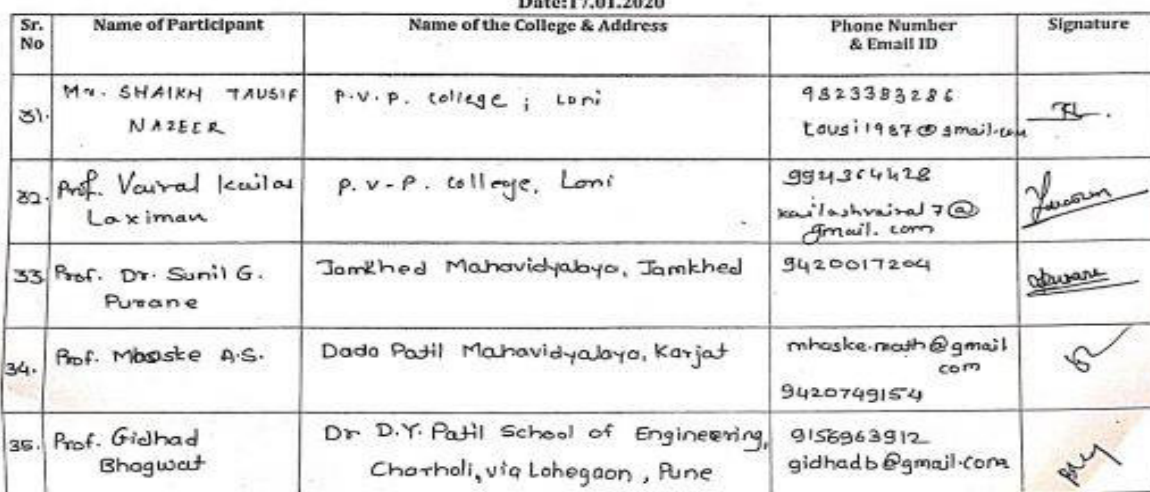 Date:17.01.2020
Sr. No Name of Participant Name of the College & Address Phone Number & Email ID Signature
31. Mr. SHAIKH TAUSIF NAZEER P.V.P. college ; Loni 9823383286 tousi1987@gmail.com
32. Prof. Vairal Kailas Laximan P.V.P. college, Loni 9921364428 kailashvairal7@gmail.com
33. Prof. Dr. Sunil G. Purane Jamkhed Mahavidyalaya, Jamkhed 9420017204
34. Prof. Mhaske A.S. Dada Patil Mahavidyalaya, Karjat mhaske.math@gmail com 9420749154
35. Prof. Gidhad Bhagwat Dr D.Y. Patil School of Engineering, Charholi, via Lohegaon, Pune 9156963912 gidhadb@gmail.com